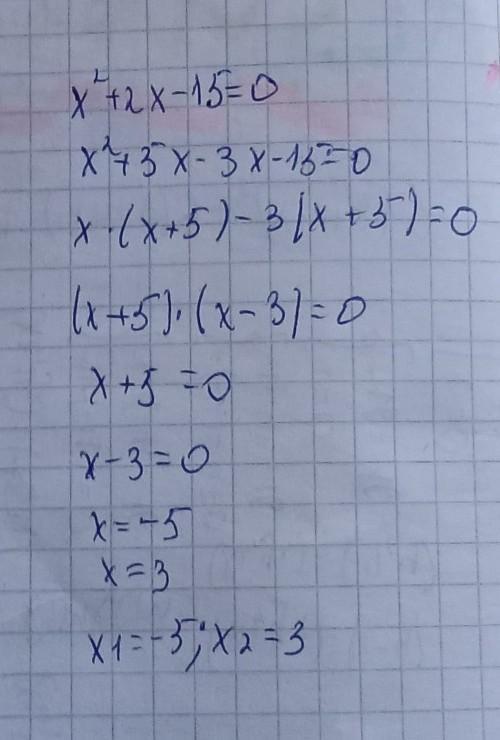 x²+2x-15=0
x²+5x-3x-15=0
x·(x+5)-3(x+5)=0
(x+5)·(x-3)=0
x+5=0
x-3=0
x=-5
x=3
x1=-5; x2=3